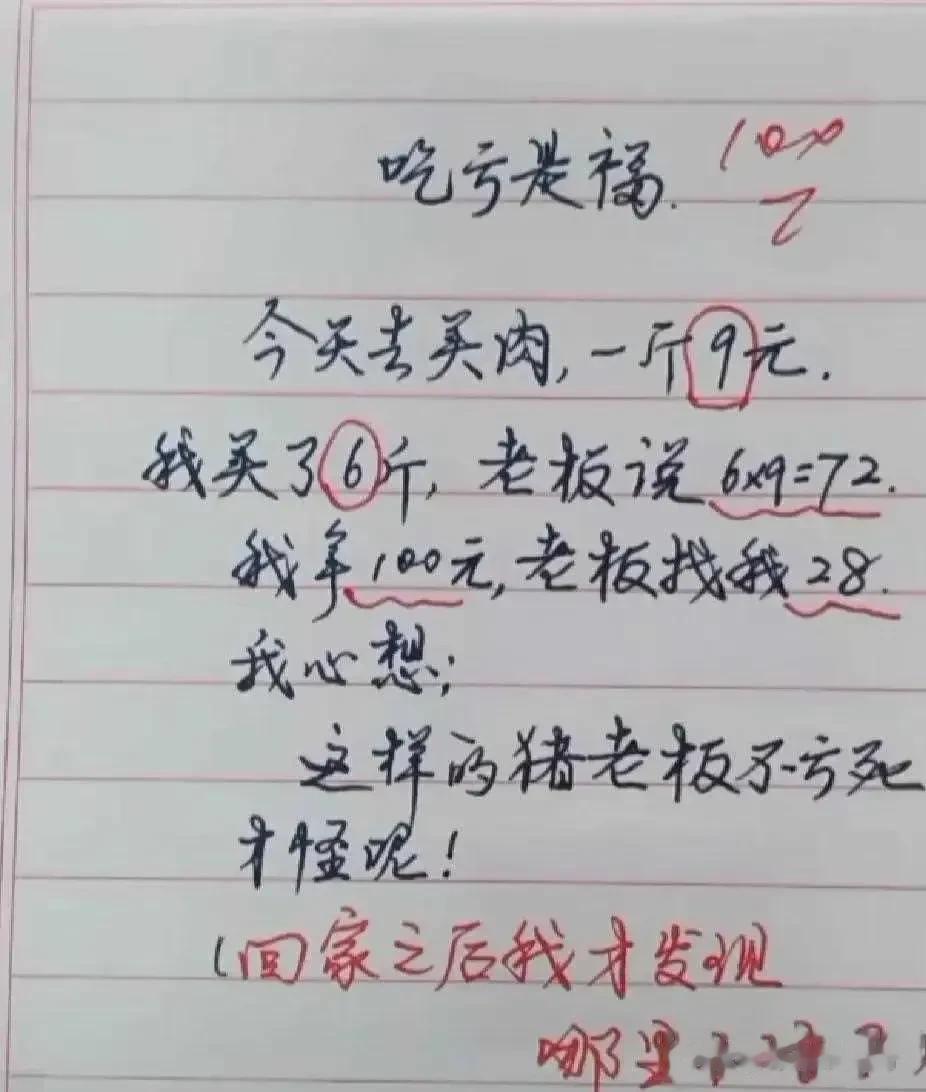 吃亏是福.
今天去买肉,一斤9元.
我买了6斤,老板说6x9=72.
我拿100元,老板找我28.
我心想;
这样的猪老板不亏死
才怪呢!
(回家之后我才发现
哪里